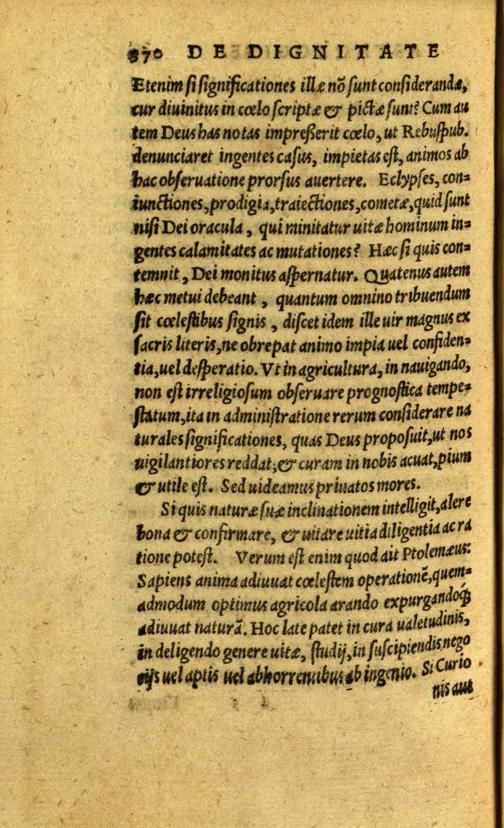 370 DE DIGNITATE
Etenim si significationes illæ nõ sunt considerandæ,
cur diuinitus in cœlo scriptæ & pictæ sunt? Cum au
tem Deus has notas impreßerit cœlo, ut Rebuspub.
denunciaret ingentes casus, impietas est, animos ab
hac obseruatione prorsus auertere. Eclypses, con=
iunctiones, prodigia, traiectiones, cometæ, quid sunt
nisi Dei oracula, qui minitatur uitæ hominum in=
gentes calamitates ac mutationes? Hæc si quis con=
temnit, Dei monitus aspernatur. Quatenus autem
hæc metui debeant, quantum omnino tribuendum
sit cœlestibus signis, discet idem ille uir magnus ex
sacris literis, ne obrepat animo impia uel confiden=
tia, uel desperatio. Vt in agricultura, in nauigando,
non est irreligiosum obseruare prognostica tempe=
statum, ita in administratione rerum considerare na
turales significationes, quas Deus proposuit, ut nos
uigilantiores reddat, & curam in nobis acuat, pium
& utile est. Sed uideamus priuatos mores.
Si quis naturæ suæ inclinationem intelligit, alere
bona & confirmare, & uitare uitia diligentia ac ra
tione potest. Verum est enim quod ait Ptolemæus:
Sapiens anima adiuuat cœlestem operationẽ, quem=
admodum optimus agricola arando expurgandoq́;
adiuuat naturã. Hoc late patet in cura ualetudinis,
in deligendo genere uitæ, studij, in suscipiendis nego
cijs uel aptis uel abhorrentibus ab ingenio. Si Curio
nis aut